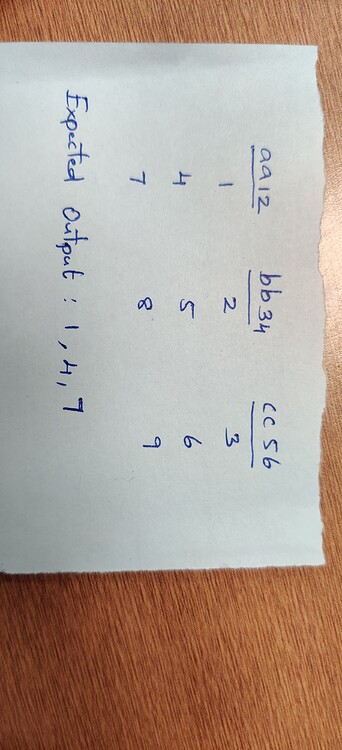 aa12 bb34 cc56
1 2 3
4 5 6
7 8 9
Expected Output : 1, 4, 7